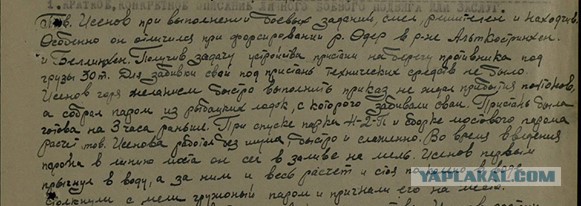 I. КРАТКОЕ, КОНКРЕТНОЕ ОПИСАНИЕ ЛИЧНОГО БОЕВОГО ПОДВИГА ИЛИ ЗАСЛУГ.
Тов. Исенов при выполнении боевых заданий смел решителен и находчив.
Особенно он отличился при форсировании р. Одер в р-не Альткюстринхен.
и Целлинхен. Получив задачу устройства пристани на берегу противника под
грузы 30т. Для забивки свай под пристань технических средств не было
Исенов горя желанием быстро выполнить приказ не ждал прибытия понтонов,
а собрал паром из рыбацких лодок, с которого забивали сваи. Пристань была
готова на 3 часа раньше. При спуске парка Н-2-П и сборке мостового парома
расчет тов. Исенова работал без шума, быстро и слаженно. Во время введения
парома в линию моста он сел в заливе на мель. Исенов первым
прыгнул в воду, а за ним и весь расчет и стоя по в воде
столкнули с мели груженый паром и пригнали его на место.
YAPLAKAL.COM